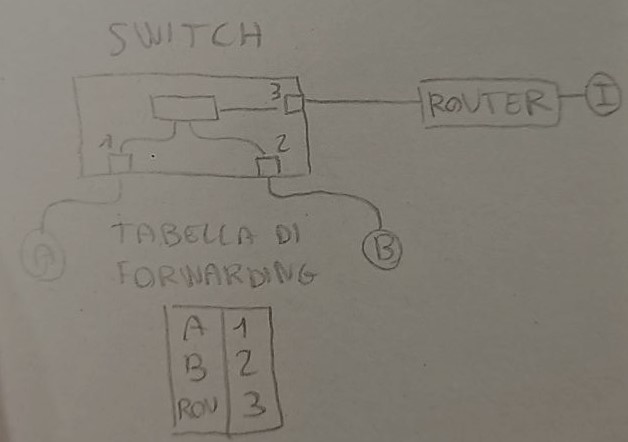 SWITCH
3
ROUTER
I
1
2
A
B
TABELLA DI
FORWARDING
A 1
B 2
ROU 3